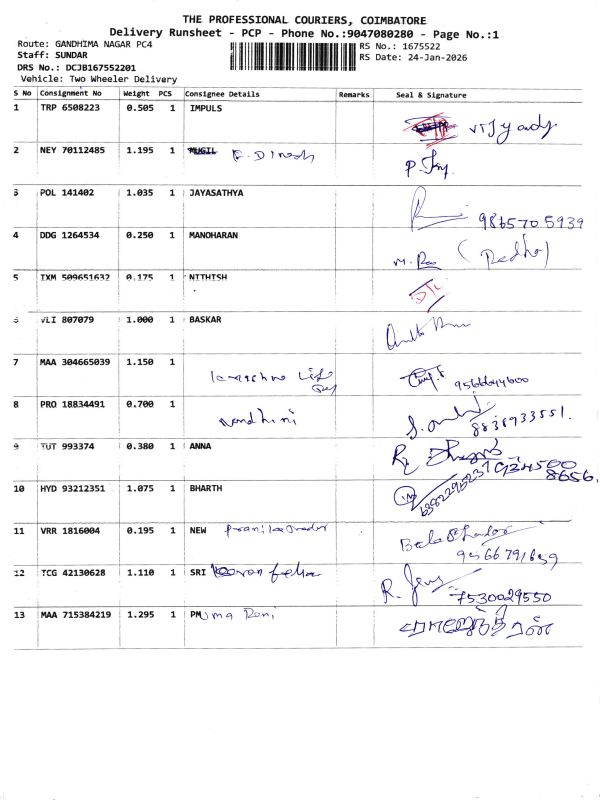 THE PROFESSIONAL COURIERS, COIMBATORE
Delivery Runsheet - PCP - Phone No.:9047080280 - Page No.:1
Route: GANDHIMA NAGAR PC4
RS No.: 1675522
Staff: SUNDAR
RS Date: 24-Jan-2026
DRS No.: DCJB167552201
Vehicle: Two Wheeler Delivery
S No Consignment No Weight PCS Consignee Details Remarks Seal & Signature
1 TRP 6508223 0.505 1 IMPULS
2 NEY 70112485 1.195 1 MUGIL E. Dinesh
3 POL 141402 1.035 1 JAYASATHYA
9865705939
4 DDG 1264534 0.250 1 MANOHARAN
5 IXM 509651632 0.175 1 NITHISH
6 VLI 807079 1.000 1 BASKAR
7 MAA 304665039 1.150 1
9566644600
8 PRO 18834491 0.700 1 Nandhini
8838933551.
9 TUT 993374 0.380 1 ANNA
10 HYD 93212351 1.075 1 BHARTH
11 VRR 1816004 0.195 1 NEW
12 TCG 42130628 1.110 1 SRI
7530029550
13 MAA 715384219 1.295 1 PM Uma Rani